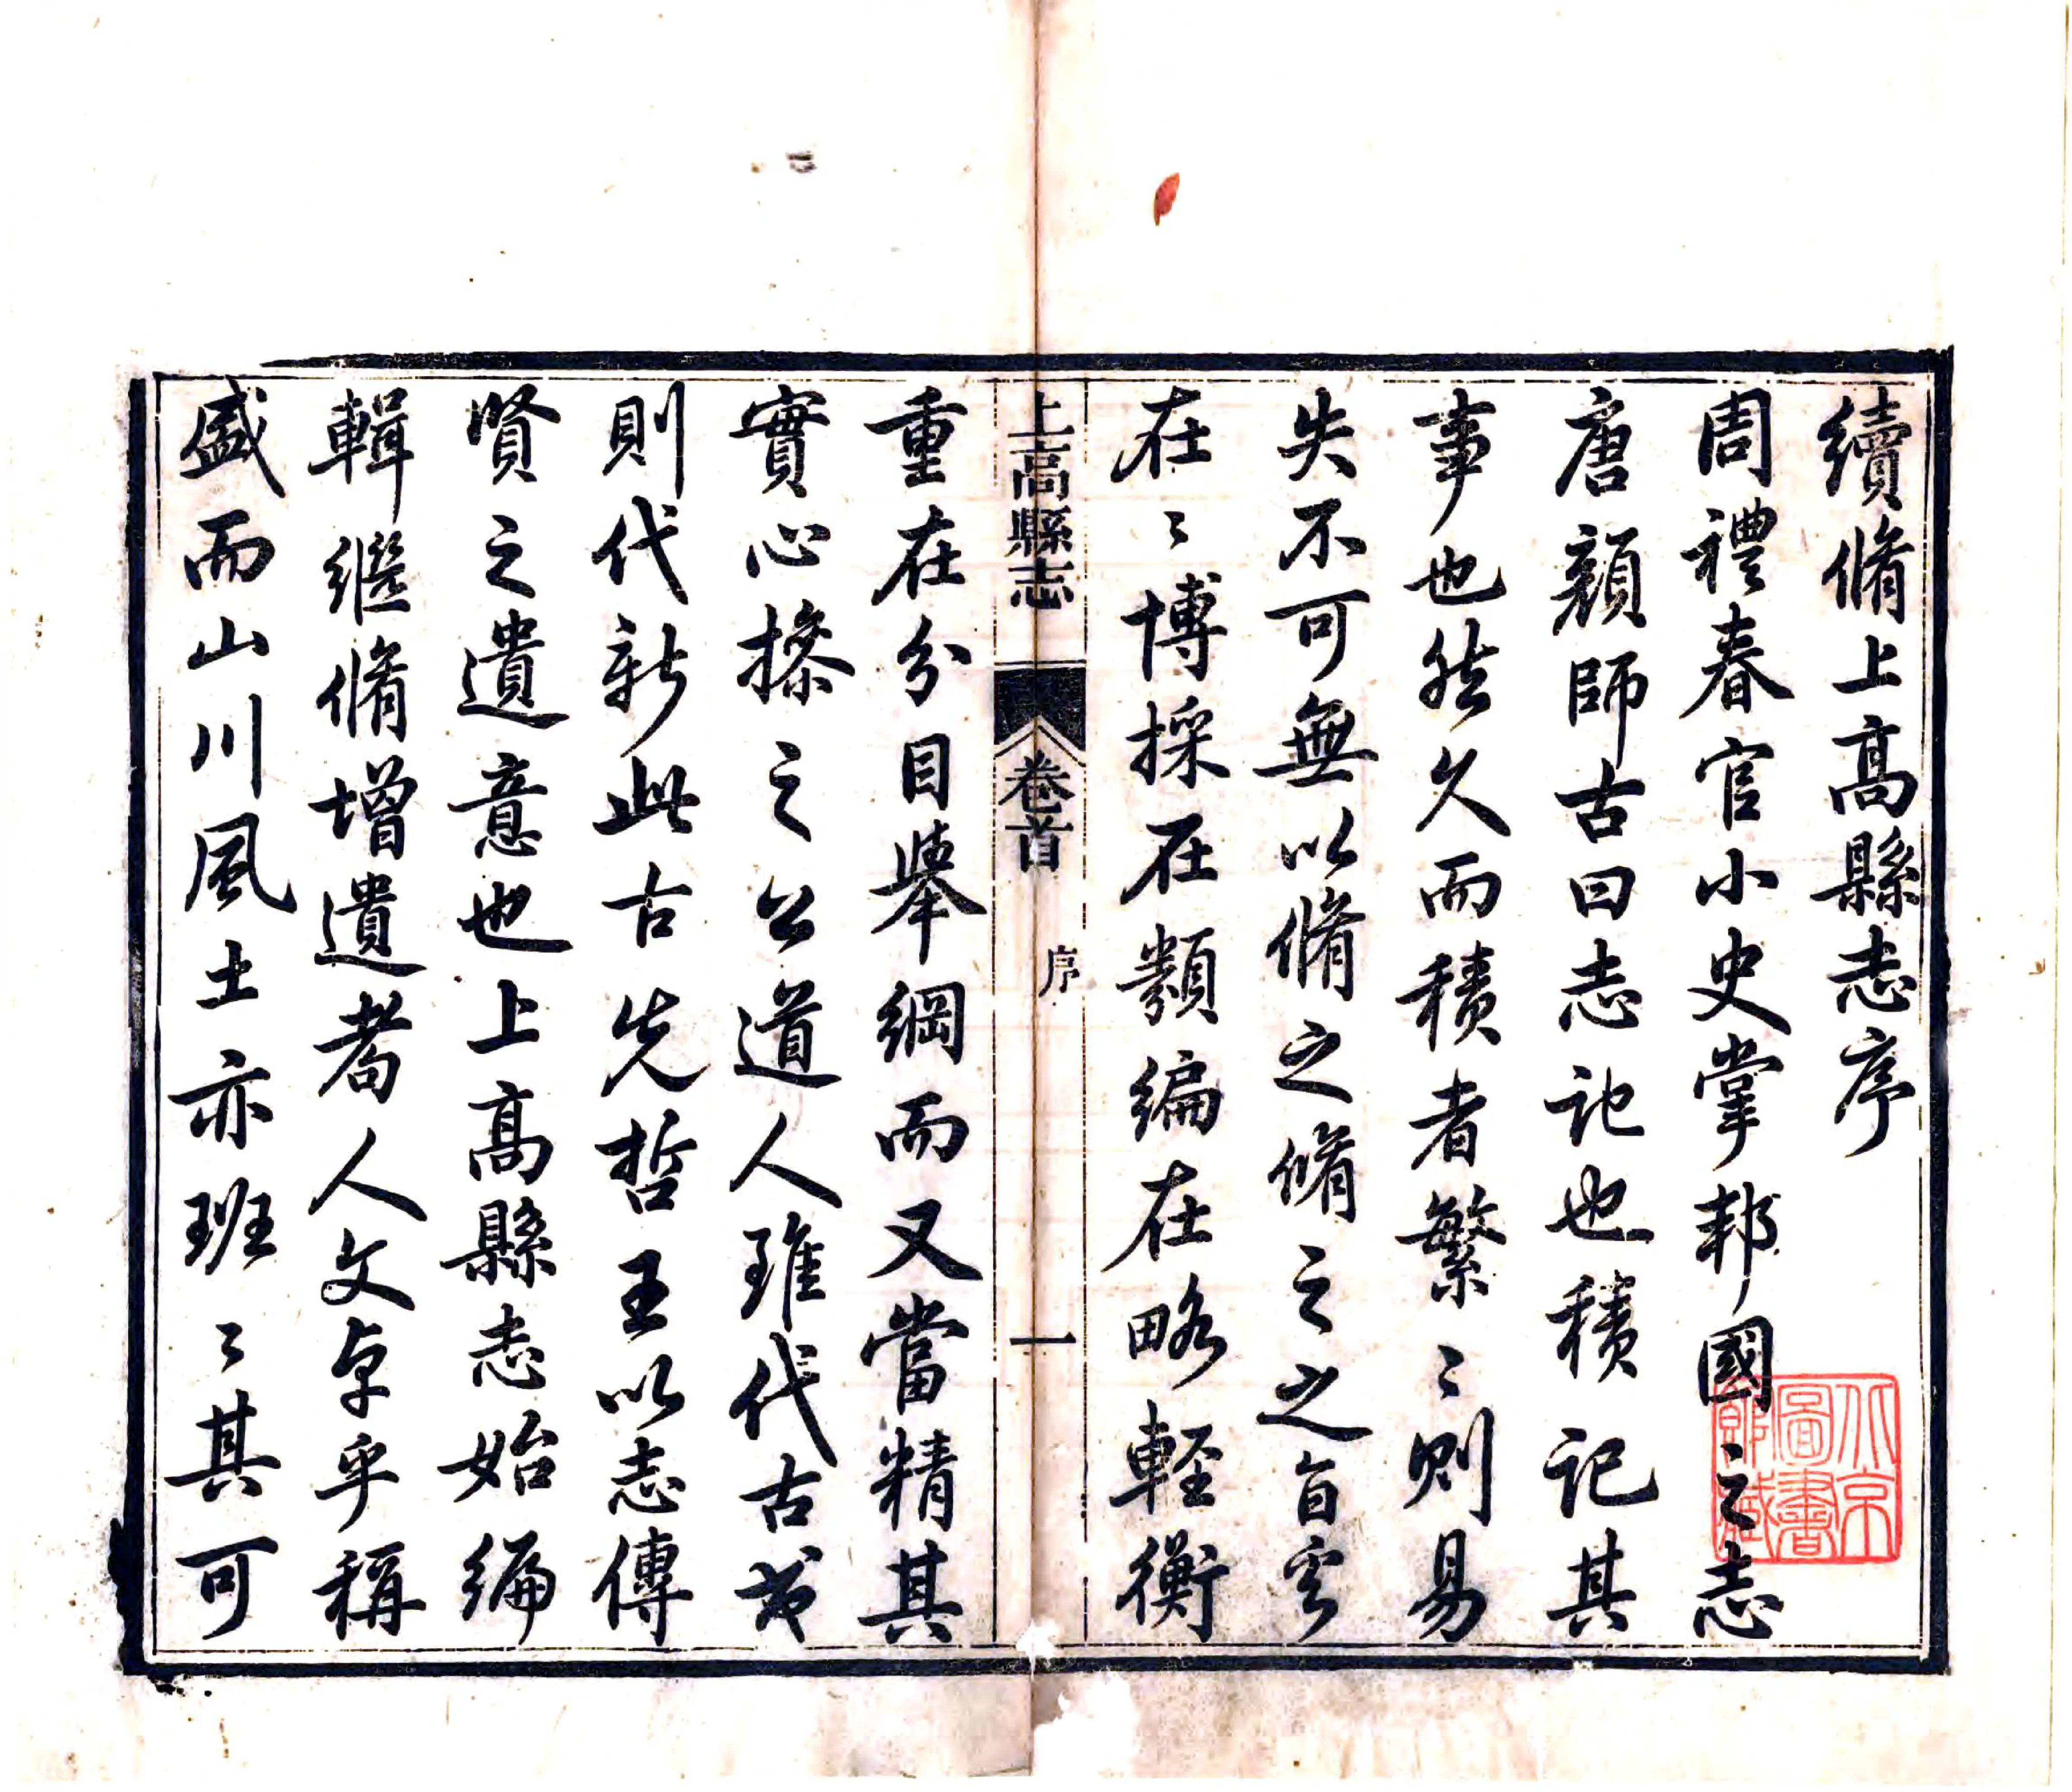 續脩上高縣志序
周禮春官小史掌邦國之志
唐顏師古曰志記也積記其
事也然久而積者繁〻則易
失不可無以脩之脩之之旨安
在〻博採在類編在略輕衡
上高縣志 卷首 序 一
重在分目舉綱而又當精其
實心操之公道人雖代古或
則代新此古先哲王以志傳
賢之遺意也上高縣志始編
輯繼脩增遺者人文卓乎稱
盛而山川風土亦班〻其可
北京圖書館藏